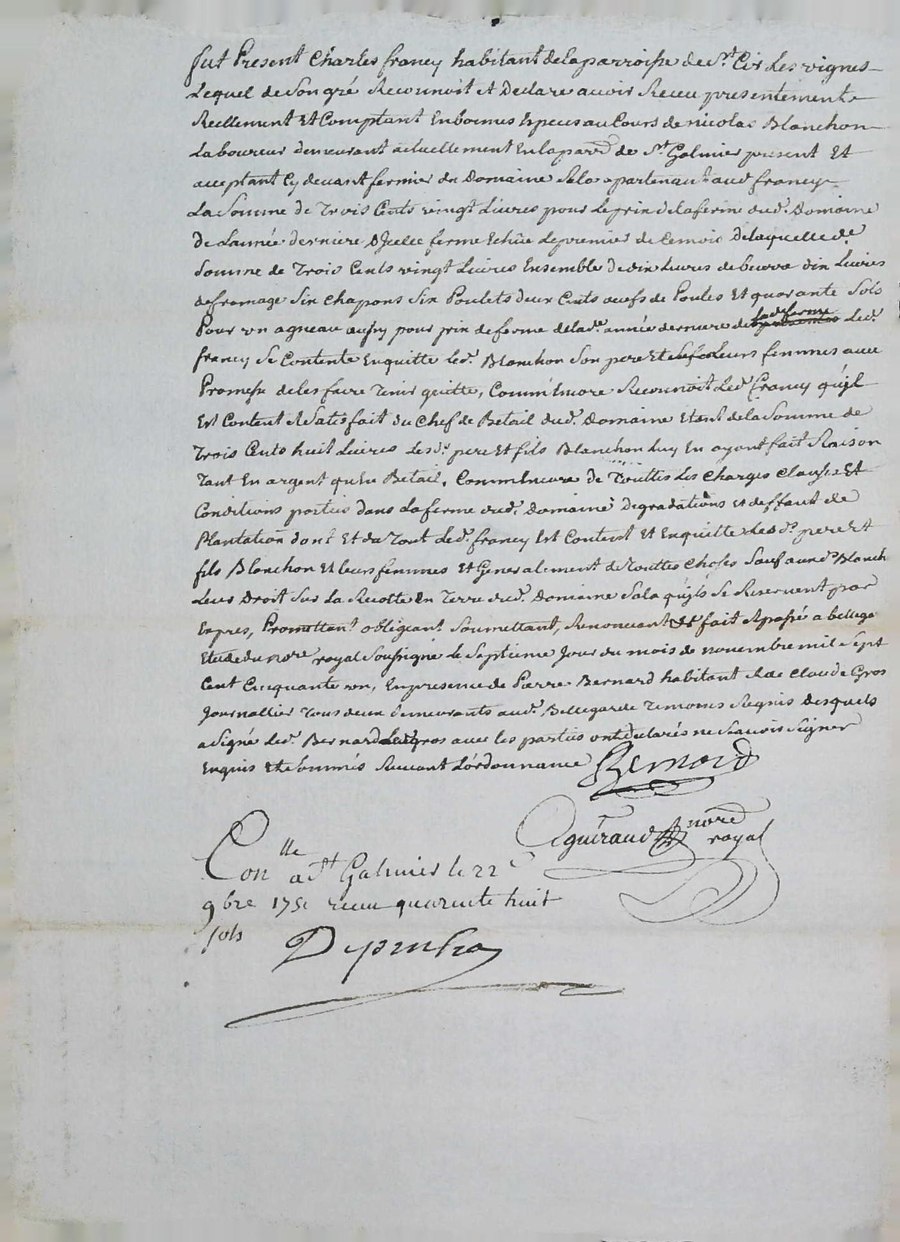 fut Present Charles francy habitant de la parroisse de St Cir Les vignes
Lequel de Son gré Reconnoit et Declare avoir Receu presentement
Reellement Et Comptant En bonnes Especes au Cours de nicolas Blanchon
Laboureur demeurant actuellement En la parr.e de St Galmier present Et
acceptant Cy devant fermier du Domaine Sala apartenant aud francy
La Somme de Trois Cents vingt Livres pour Le prix de la ferme dud. Domaine
de L'année derniere d'Icelle ferme Echüe Le premier de Ce mois De laquelle d.e
Somme de Trois Cents vingt Livres Ensemble de dix Livres de beurre dix Livres
de fromage Six Chapons Six Poulets deux Cents oeufs de Poules Et quarante Sols
Pour un agneau aussy pour prix de ferme de lad.e année derniere de lad.e ferme Led.
francy Se Contente En quitte Led. Blanchon Son pere Et Leurs femmes avec
Promesse de les faire Tenir quitte, Comm'Encore Reconnoit Led. francy qu'il
Est Content et Satisfait du Chef de Betail dud. Domaine Etant de la Somme de
Trois Cents huit Livres Lesd.s pere Et fils Blanchon Luy En ayant fait Raison
Tant En argent qu'En Betail, Comm'Encore de Touttes Les Charges Clauses Et
Conditions portées dans La ferme dud. Domaine Degradations et deffaut de
Plantation dont Et du Tout Led. francy Est Content Et En quitte Lesd.s pere Et
fils Blanchon Et leurs femmes Et Generalement de Touttes Choses Sauf auxd. Blanch
Leur Droit Sur La Recolte En Terre dud. Domaine Sala qu'ils Se Reservent par
Expres, Promettant obligeant Soumettant, Renonceant fait et Passé a bellega
Etude du no.re royal Soussigné le Septieme Jour du mois de novembre mil Sept
Cent Cinquante un, En presence de Pierre Bernard habitant et de Claude Gros
Journallier Tous deux demeurants aud. Bellegarde Temoins Requis Desquels
a Signé Led. Bernard Led Gros avec les parties ont declarés ne Scavoir Signer
Enquis Et Sommés Suivant L'ordonnance Bernard
Aguiraud nore
royal
Con.lle a St Galmier le 22e
9bre 1751 receu quarente huit
sols